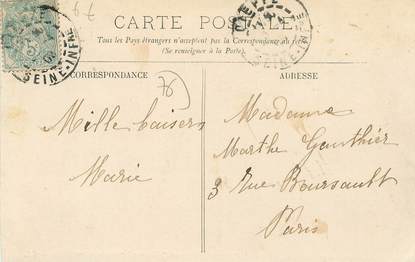 79
CARTE POSTALE
Tous les Pays étrangers n'acceptent pas la Correspondance au
(Se renseigner à la Poste).
SEINE-INFRE
CORRESPONDANCE
ADRESSE
Mille baisers
Marie
Madame
Marthe Gauthier
3 Rue Boursault
Paris